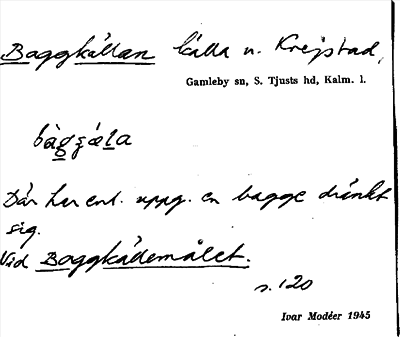 Baggkällan källa n. Krejstad,
Gamleby sn, S. Tjusts hd, Kalm. l.
Där har enl. uppg. en bagge dränkt
sig.
Vid Baggkädemålet.
s. 120
Ivar Modéer 1945